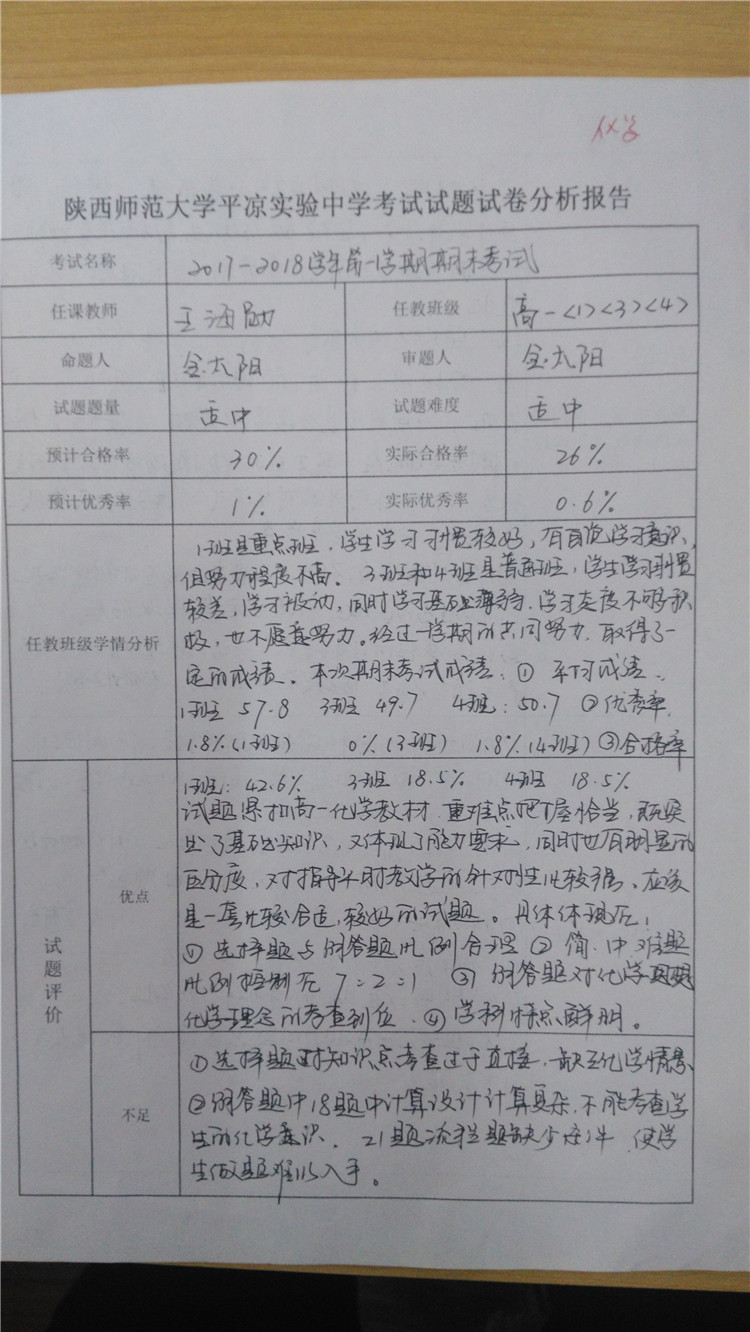 化学
陕西师范大学平凉实验中学考试试题试卷分析报告
考试名称 2017-2018学年第一学期期末考试
任课教师 王海勋 任教班级 高一<1><3><4>
命题人 金太阳 审题人 金太阳
试题题量 适中 试题难度 适中
预计合格率 30% 实际合格率 26%
预计优秀率 1% 实际优秀率 0.6%
任教班级学情分析
1班是重点班，学生学习习惯较好，有自觉学习意识，
但努力程度不高。3班和4班是普通班，学生学习习惯
较差，学习被动，同时学习基础薄弱，学习态度不够积
极，也不愿意努力。经过一学期的共同努力，取得了一
定的成绩。本次期末考试成绩：① 平均成绩：
1班 57.8 3班 49.7 4班：50.7 ②优秀率
1.8%(1班) 0%(3班) 1.8%(4班) ③合格率
1班：42.6% 3班 18.5% 4班 18.5%
试题评价
优点
试题紧扣高一化学教材，重难点把握恰当，既突
出了基础知识，又体现了能力要求，同时也有明显的
区分度，对指导平时教学的针对性比较强。应该
是一套比较合适，较好的试题。具体体现在：
① 选择题与解答题比例合理 ② 简、中、难题
比例控制在 7:2:1 ③ 解答题对化学思想
化学理念的考查到位。④ 学科特点鲜明。
不足
① 选择题对知识点考查过于直接，缺乏化学情景
② 解答题中18题中计算设计计算复杂，不能考查学
生的化学意识。21题流程题缺少条件，使学
生做题难以入手。